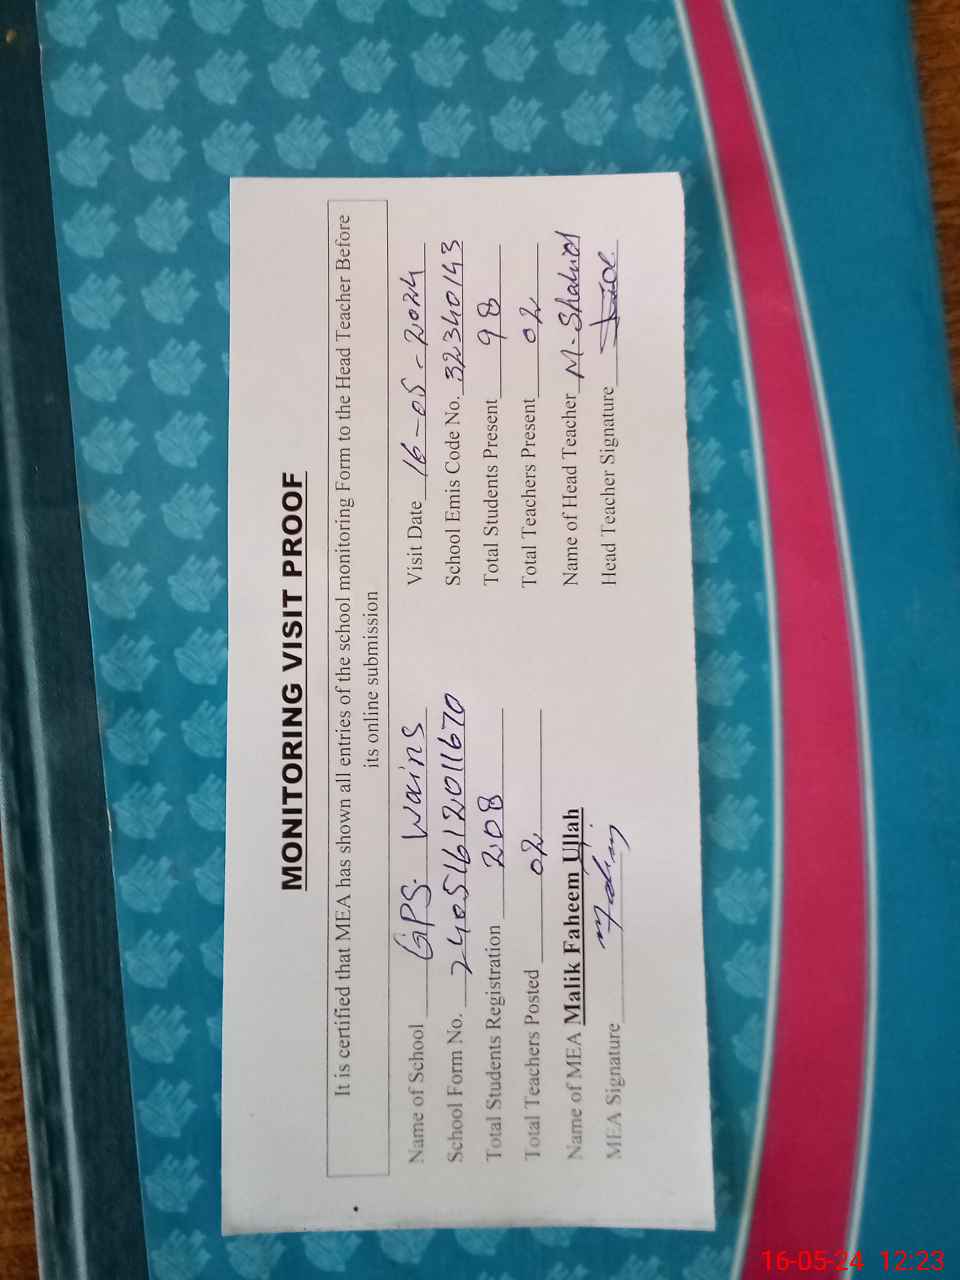 MONITORING VISIT PROOF
It is certified that MEA has shown all entries of the school monitoring Form to the Head Teacher Before
its online submission
Name of School GPS. Wains Visit Date 16-05-2024
School Form No. 24051612011670 School Emis Code No. 32340143
Total Students Registration 208 Total Students Present 98
Total Teachers Posted 02 Total Teachers Present 02
Name of MEA Malik Faheem Ullah Name of Head Teacher M-Shahid
MEA Signature Head Teacher Signature
16-05-24 12:23